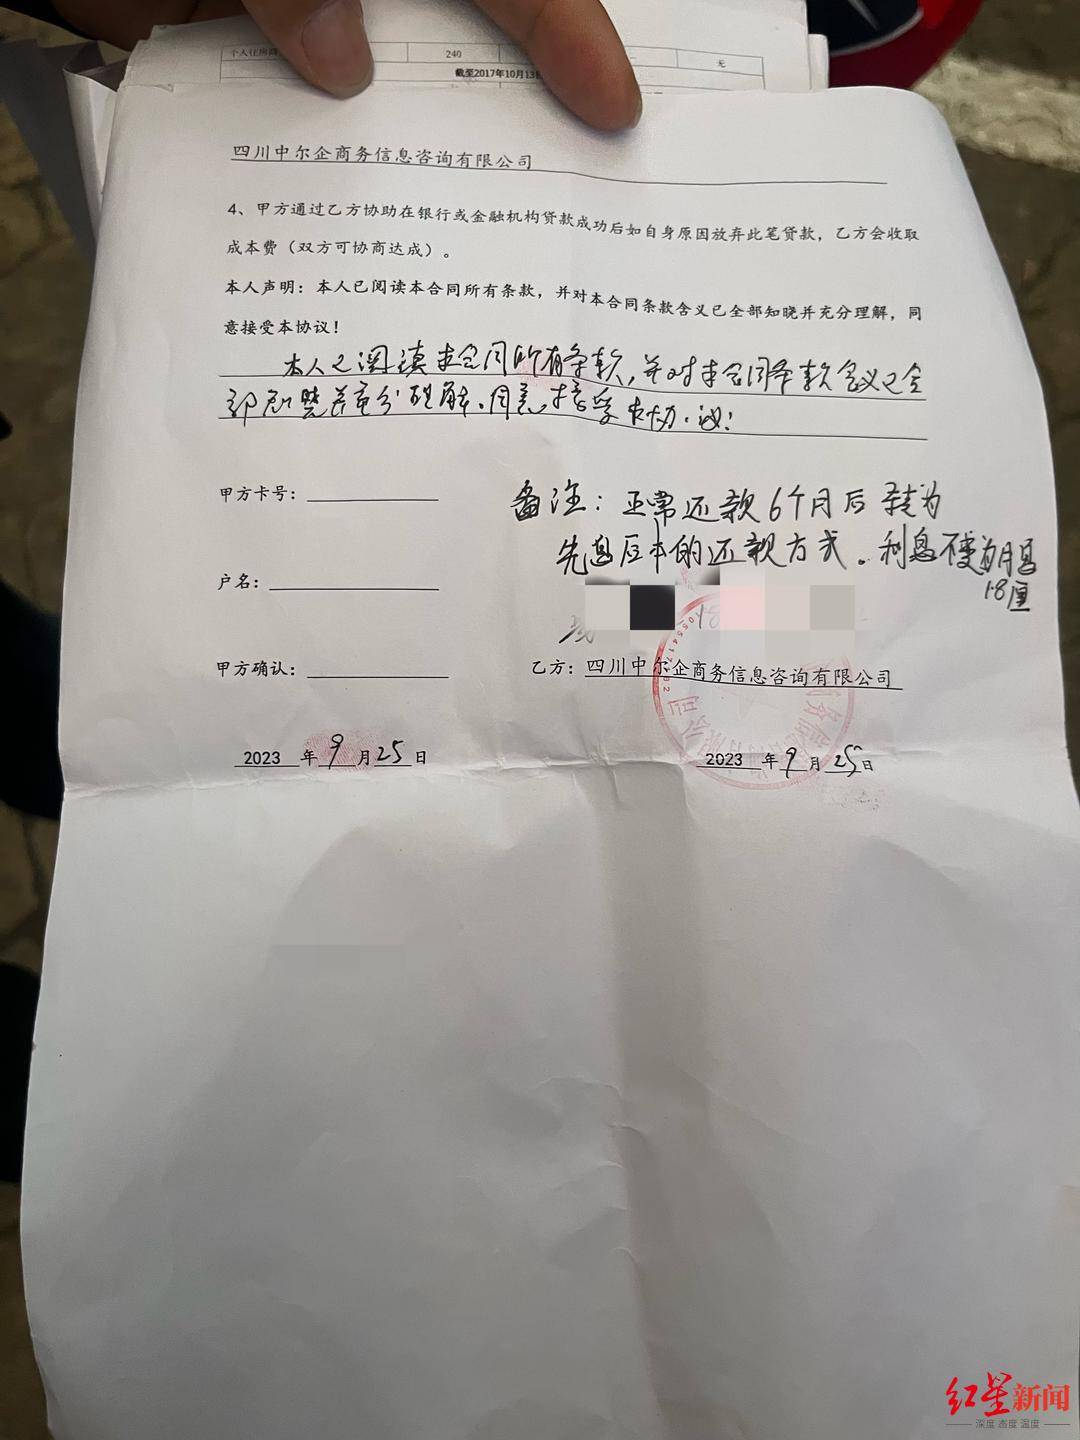 个人住房商
240
无
截至2017年10月13日
四川中尔企商务信息咨询有限公司
4、甲方通过乙方协助在银行或金融机构贷款成功后如自身原因放弃此笔贷款，乙方会收取
成本费（双方可协商达成）。
本人声明：本人已阅读本合同所有条款，并对本合同条款含义已全部知晓并充分理解，同
意接受本协议！
本人已阅读本合同所有条款，并对本合同条款含义已全
部知晓并充分理解，同意接受本协议！
甲方卡号：
备注：正常还款6个月后转为
先息后本的还款方式。利息不变为月息
1.8厘
户名：
18
甲方确认：
乙方：四川中尔企商务信息咨询有限公司
2023 年 9 月 25 日
2023 年 9 月 25 日
红星新闻
深度 态度 温度